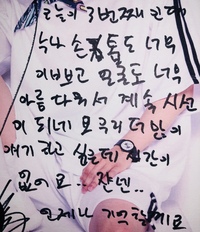 오늘이 3번째 인데
누나 손톱도 너무
이쁘고 얼굴도 너무
아름다워서 계속 시선
이 되네 모르
얘기 하고 싶은데 시간이
없어요..
언제나 기억할게요